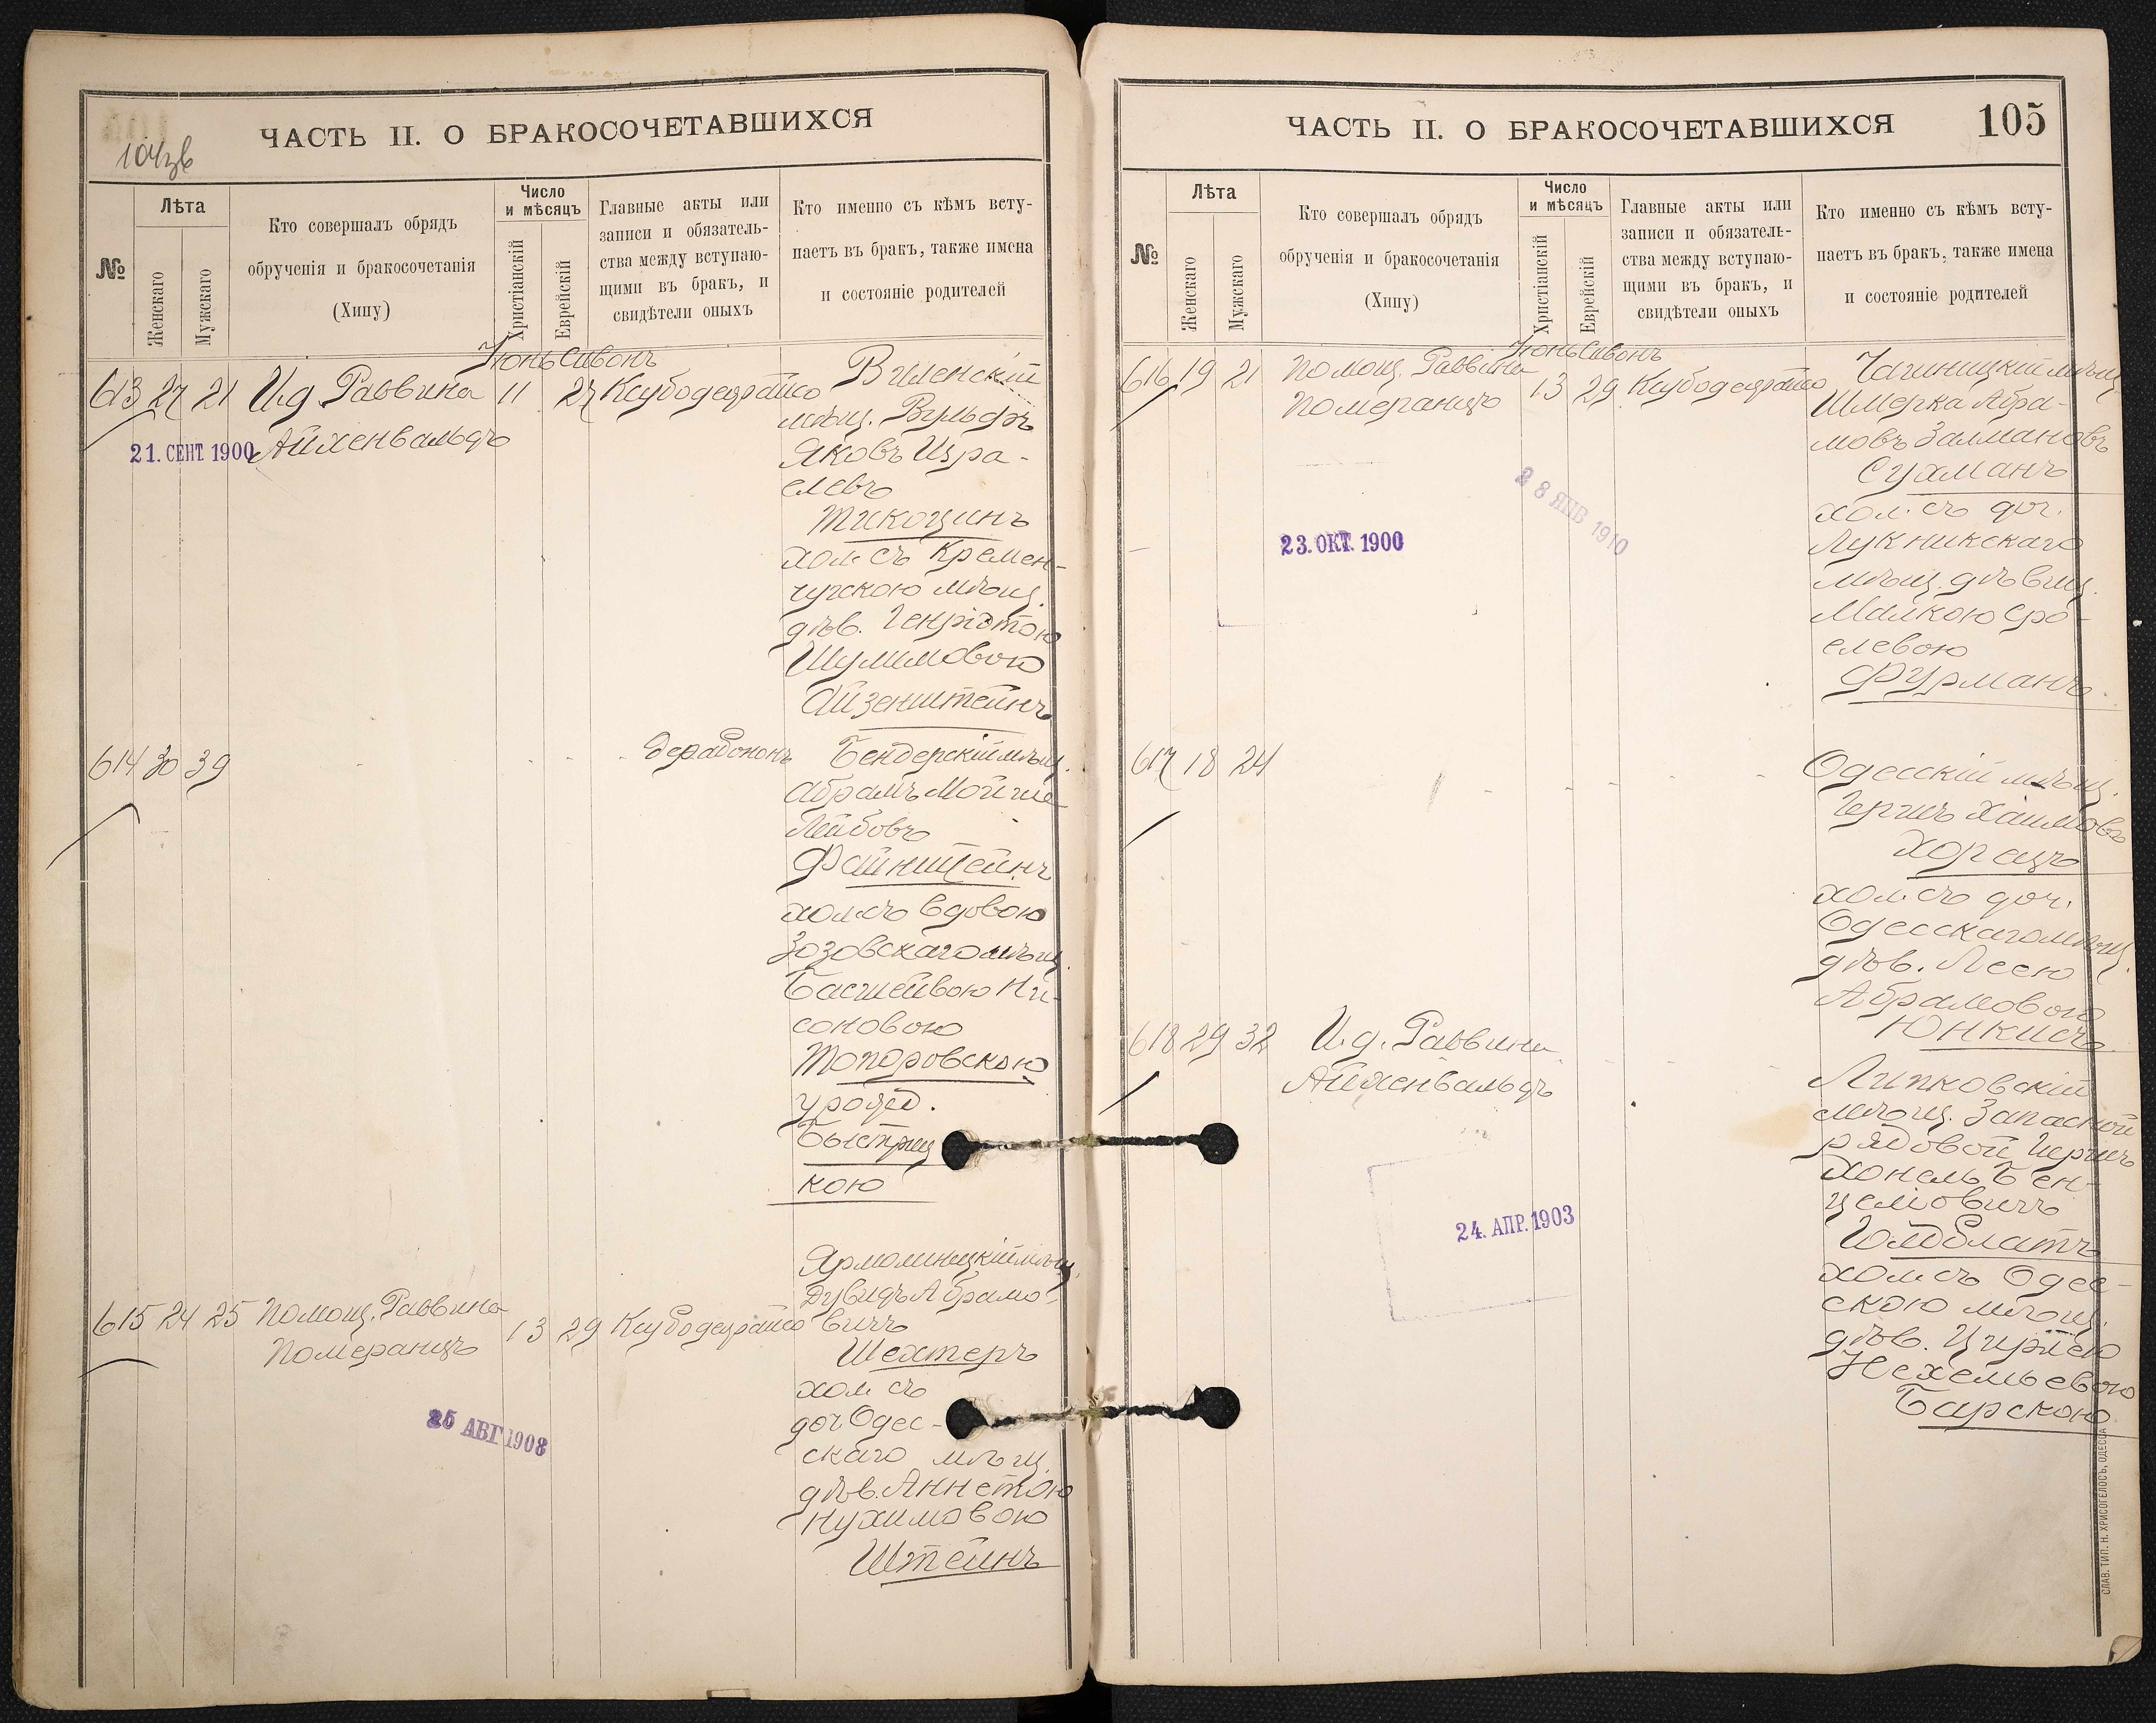 104зв
ЧАСТЬ II. О БРАКОСОЧЕТАВШИХСЯ
№
Лѣта
Женскаго
Мужскаго
Кто совершалъ обрядъ
обрученія и бракосочетанія
(Хипу)
Число
и мѣсяцъ
Христіанскій
Еврейскій
Главные акты или
записи и обязатель-
ства между вступаю-
щими въ бракъ, и
свидѣтели оныхъ
Кто именно съ кѣмъ всту-
паетъ въ бракъ, также имена
и состояніе родителей
Іюнь Сивонъ
613 27 21 И.д. Раввина 11 27
Айхенвальдъ
21. СЕНТ. 1900
Виленскій
мѣщ. Вульфъ
Яковъ Изра-
елевъ
Тикоцинъ
хол. съ Кремен-
чугскою мѣщ.
дѣв. Генріэтою
Шулимовою
Айзенштейнъ
614 30 39
Бендерскій мѣщ.
Абрамъ Мойше
Лейбовъ
Файнштейнъ
хол. съ вдовою
Зозовскаго мѣщ.
Басшейвою Ни-
соновою
Топоровскою
урожд.
Быстриц
кою
615 24 25 Помощ. Раввина 13 29
Померанцъ
25 АВГ 1908
Ярмолинецкій мѣщ.
Дувидъ Абрамо-
вичъ
Шехтеръ
хол. съ
доч. Одес-
скаго мѣщ.
дѣв. Аннетою
Нухимовою
Штейнъ
ЧАСТЬ II. О БРАКОСОЧЕТАВШИХСЯ
105
№
Лѣта
Женскаго
Мужскаго
Кто совершалъ обрядъ
обрученія и бракосочетанія
(Хипу)
Число
и мѣсяцъ
Христіанскій
Еврейскій
Главные акты или
записи и обязатель-
ства между вступаю-
щими въ бракъ, и
свидѣтели оныхъ
Кто именно съ кѣмъ всту-
паетъ въ бракъ, также имена
и состояніе родителей
Іюнь Сивонъ
616 19 21 Помощ. Раввина 13 29
Померанцъ
28 ЯНВ 1910
23. ОКТ. 1900
мѣщ.
Шмерка Абра-
мовъ Залмановъ
Сухманъ
хол. съ доч.
Лукникскаго
мѣщ. дѣвиц.
Малкою Сро-
елевою
Фурманъ
617 18 24
Одесскій мѣщ.
Гершъ Хаимовъ
Хоргацъ
хол. съ доч.
Одесскаго мѣщ.
дѣв. Леею
Абрамовою
Юнкисъ
618 29 32 И.д. Раввина
Айхенвальдъ
24. АПР. 1903
Липковскій
мѣщ. Запасной
рядовой Гершъ
Хонель Бен-
целіовичъ
Голдблатъ
хол. съ Одес-
скою мѣщ.
дѣв. Цирлею
Нехемьевою
Барскою
СЛАВ. ТИП. Н. ХРИСОГЕЛОСЪ, ОДЕССА